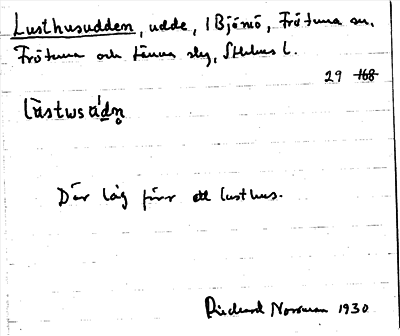 Lusthusudden, udde, i Björnö, Frötuna sn,
Frötuna och Länna skg, Sthlms l.
29 168
Där låg förr ett lusthus.
Rickard Norrman 1930